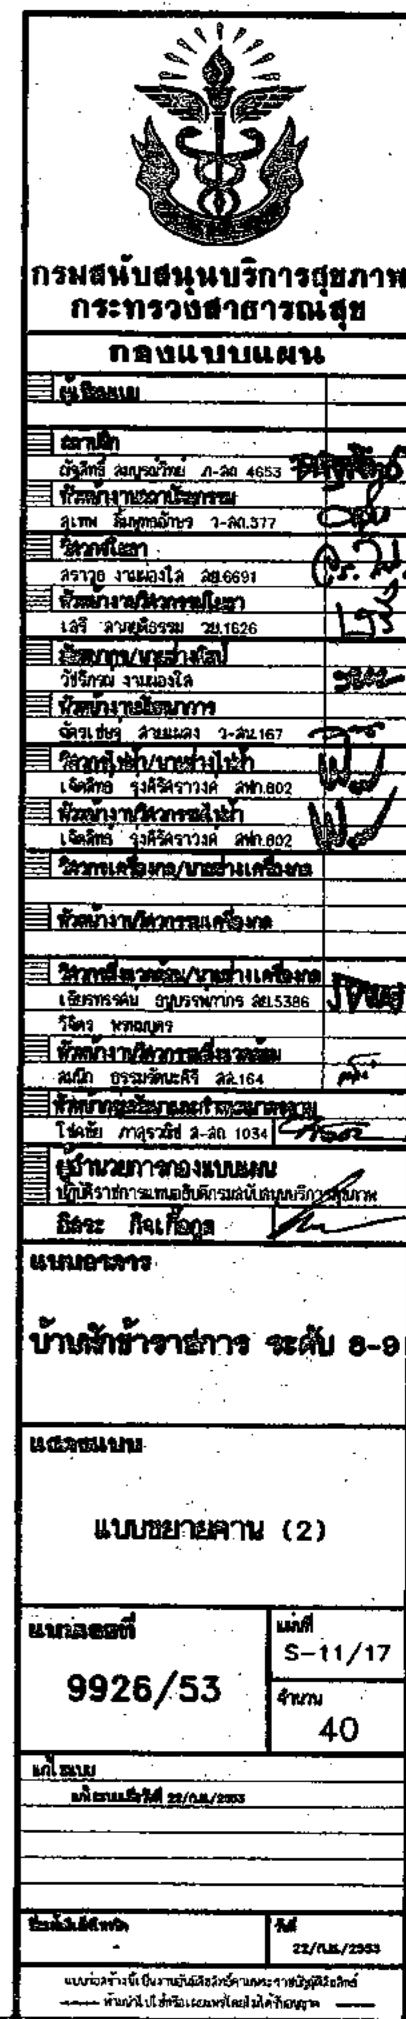 กรมสนับสนุนบริการสุขภาพ
กระทรวงสาธารณสุข
กองแบบแผน
ผู้เขียนแบบ
สถาปนิก
ณัฐสิทธิ์ สมบูรณ์วิทย์ ภ-สถ 4653
หัวหน้างานสถาปัตยกรรม
สุเทพ ลิ้มพุทธอักษร ว-สถ.377
วิศวกรโยธา
สราวุธ งามผ่องใส สย.6691
หัวหน้างานวิศวกรรมโยธา
เสรี ลาภยุติธรรม วย.1626
มัณฑนากร/นายช่างศิลป์
วัชรีกรณ งามผ่องใส
หัวหน้างานมัณฑนาการ
ฉัตรเชษฐ 167
วิศวกรไฟฟ้า/นายช่างไฟฟ้า
เจิดสิทธิ รุ่งศิริศราวงศ์ สฟก.802
หัวหน้างานวิศวกรรมไฟฟ้า
เจิดสิทธิ รุ่งศิริศราวงศ์ สฟก.802
วิศวกรเครื่องกล/นายช่างเครื่องกล
หัวหน้างานวิศวกรรมเครื่องกล
วิศวกรสิ่งแวดล้อม/นายช่างเครื่องกล
สย.5386
วิจิตร พรหมบุตร
หัวหน้างานวิศวกรรมสิ่งแวดล้อม
สมนึก ธรรมรัตนะศิริ สส.164
โชคชัย ภาสุรวณิช ส-สถ 1034
ผู้อำนวยการกองแบบแผน
ปฏิบัติราชการแทนอธิบดีกรมสนับสนุนบริการสุขภาพ
อิสระ กิจเกื้อกูล
แบบอาคาร
บ้านพักข้าราชการ ระดับ 8-9
แสดงแบบ
แบบขยายคาน (2)
แบบเลขที่
แผ่นที่
S-11/17
9926/53
จำนวน
40
แก้ไขแบบ
แก้ไขแบบเมื่อวันที่ 22/ก.ย./2553
วันที่
-
22/ก.ย./2553
แบบก่อสร้างนี้เป็นงานอันมีลิขสิทธิ์ตามพระราชบัญญัติลิขสิทธิ์
ห้ามนำไปใช้หรือเผยแพร่โดยไม่ได้รับอนุญาต